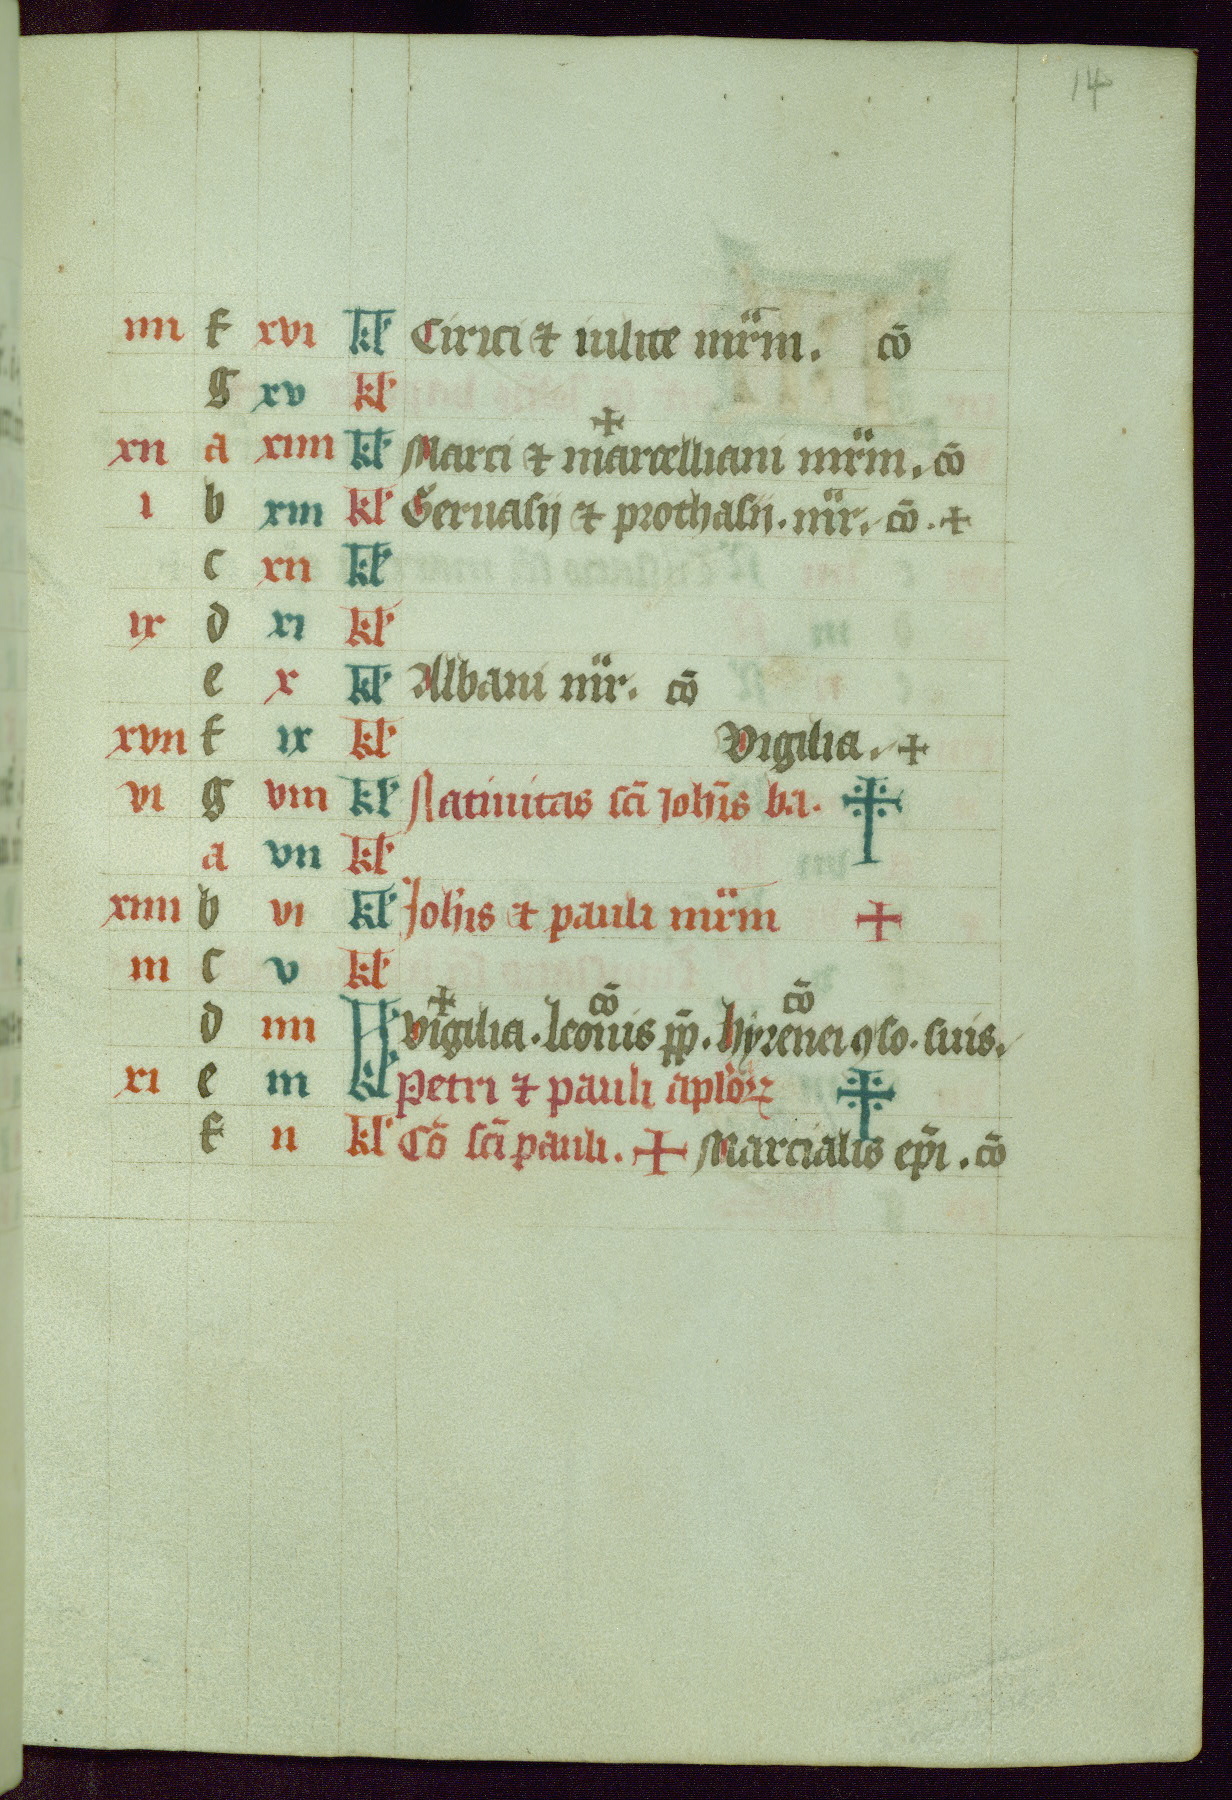 14
iiii f xvi kl Cirici ⁊ iulite mr̄m. cō
g xv kl
xii a xiiii kl Marci ⁊ marcelliani mr̄m. cō +
i b xiii kl Geruasii ⁊ prothasii. mr̄. cō. +
c xii kl
ix d xi kl
e x kl Albani mr̄. cō
xvii f ix kl Vigilia. +
vi g viii kl Natiuitas sc̄i ioh̄is ba. +
a vii kl
xiiii b vi kl Joh̄is et pauli mr̄m +
iii c v kl
d iiii kl Vigilia. + leonis pp̄. cō hyrenei ꝯso. suis. cō
xi e iii kl Petri ⁊ pauli ap̄loꝝ +
f ii kl Cō sc̄i pauli. + Marcialis ep̄i. cō